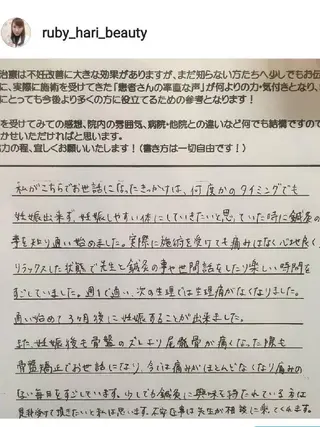 ruby_hari_beauty
治療は不妊改善に大きな効果がありますが、まだ知らない方たちへ少しでもお伝
に、実際に施術を受けてきた「患者さんの率直な声」が何よりの力・気付きとなり、
にとっても今後より多くの方に役立てるための参考となります！
を受けてみての感想、院内の雰囲気、病院・他院との違いなど何でも結構ですので
かせいただければと思います。
力の程、宜しくお願いいたします！（書き方は一切自由です！）
私がこちらでお世話になったきっかけは、何度かのタイミングでも
妊娠出来ず、妊娠しやすい体にしていきたいと思っていた時に鍼灸の
事を知り通い始めました。実際に施術を受けても痛みはなく心地良く
リラックスした状態で先生と鍼灸の事や世間話をしたり楽しい時間を
すごしていました。週1で通い、次の生理では生理痛がなくなりました。
通い始めて3ヶ月後に妊娠することが出来ました。
また、妊娠後も骨盤のズレより尾骶骨が痛くなった際も
骨盤矯正でお世話になり、今では痛みがほとんどなくなり痛みの
ない毎日をすごしています。少しでも鍼灸に興味を持たれている方は
是非受けて頂きたいと私は思います。不安な事は先生が相談に乗ってくれます。